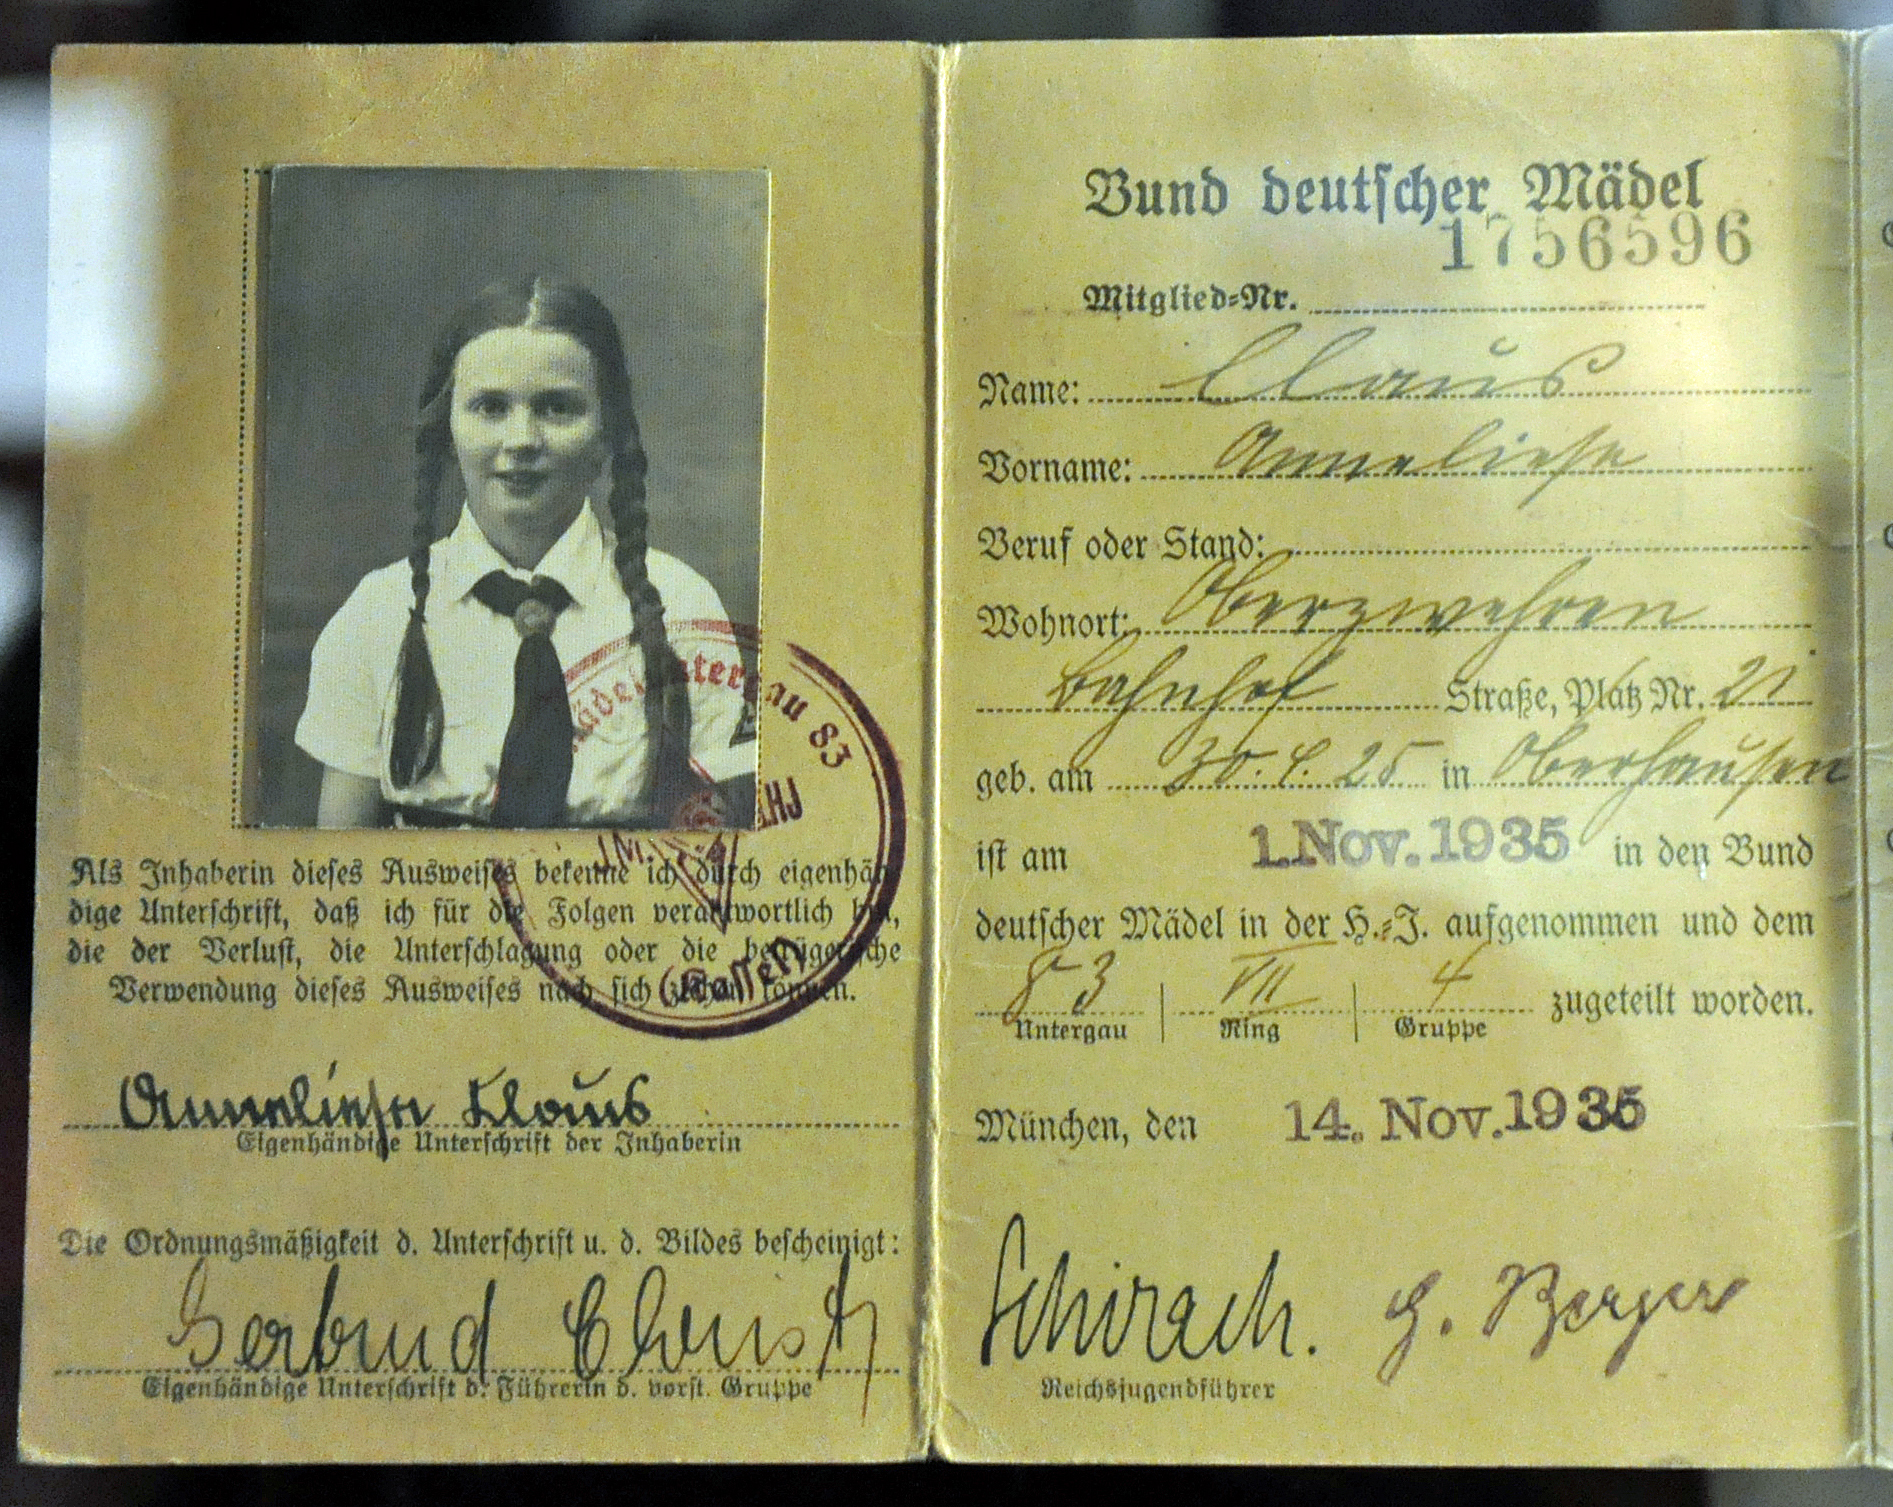 Als Inhaberin dieses Ausweises bekenne ich durch eigenhän
dige Unterschrift, daß ich für die Folgen verantwortlich bin,
die der Verlust, die Unterschlagung oder die betrügerische
Verwendung dieses Ausweises nach sich ziehen können.
Mädel Untergau 83
HJ
(Kassel)
Anneliese Claus
Eigenhändige Unterschrift der Inhaberin
Die Ordnungsmäßigkeit d. Unterschrift u. d. Bildes bescheinigt:
Gertrud
Eigenhändige Unterschrift d. Führerin d. vorst. Gruppe
Bund deutscher Mädel
1756596
Mitglied-Nr.
Name: Claus
Vorname: Anneliese
Beruf oder Stand:
Wohnort: Oberzwehren
Bahnhof Straße, Platz Nr. 21
geb. am 30. 4. 25 in Oberhausen
ist am 1. Nov. 1935 in den Bund
deutscher Mädel in der H.-J. aufgenommen und dem
83 VII 4 zugeteilt worden.
Untergau Ring Gruppe
München, den 14. Nov. 1936
Schirach. G. Berger
Reichsjugendführer